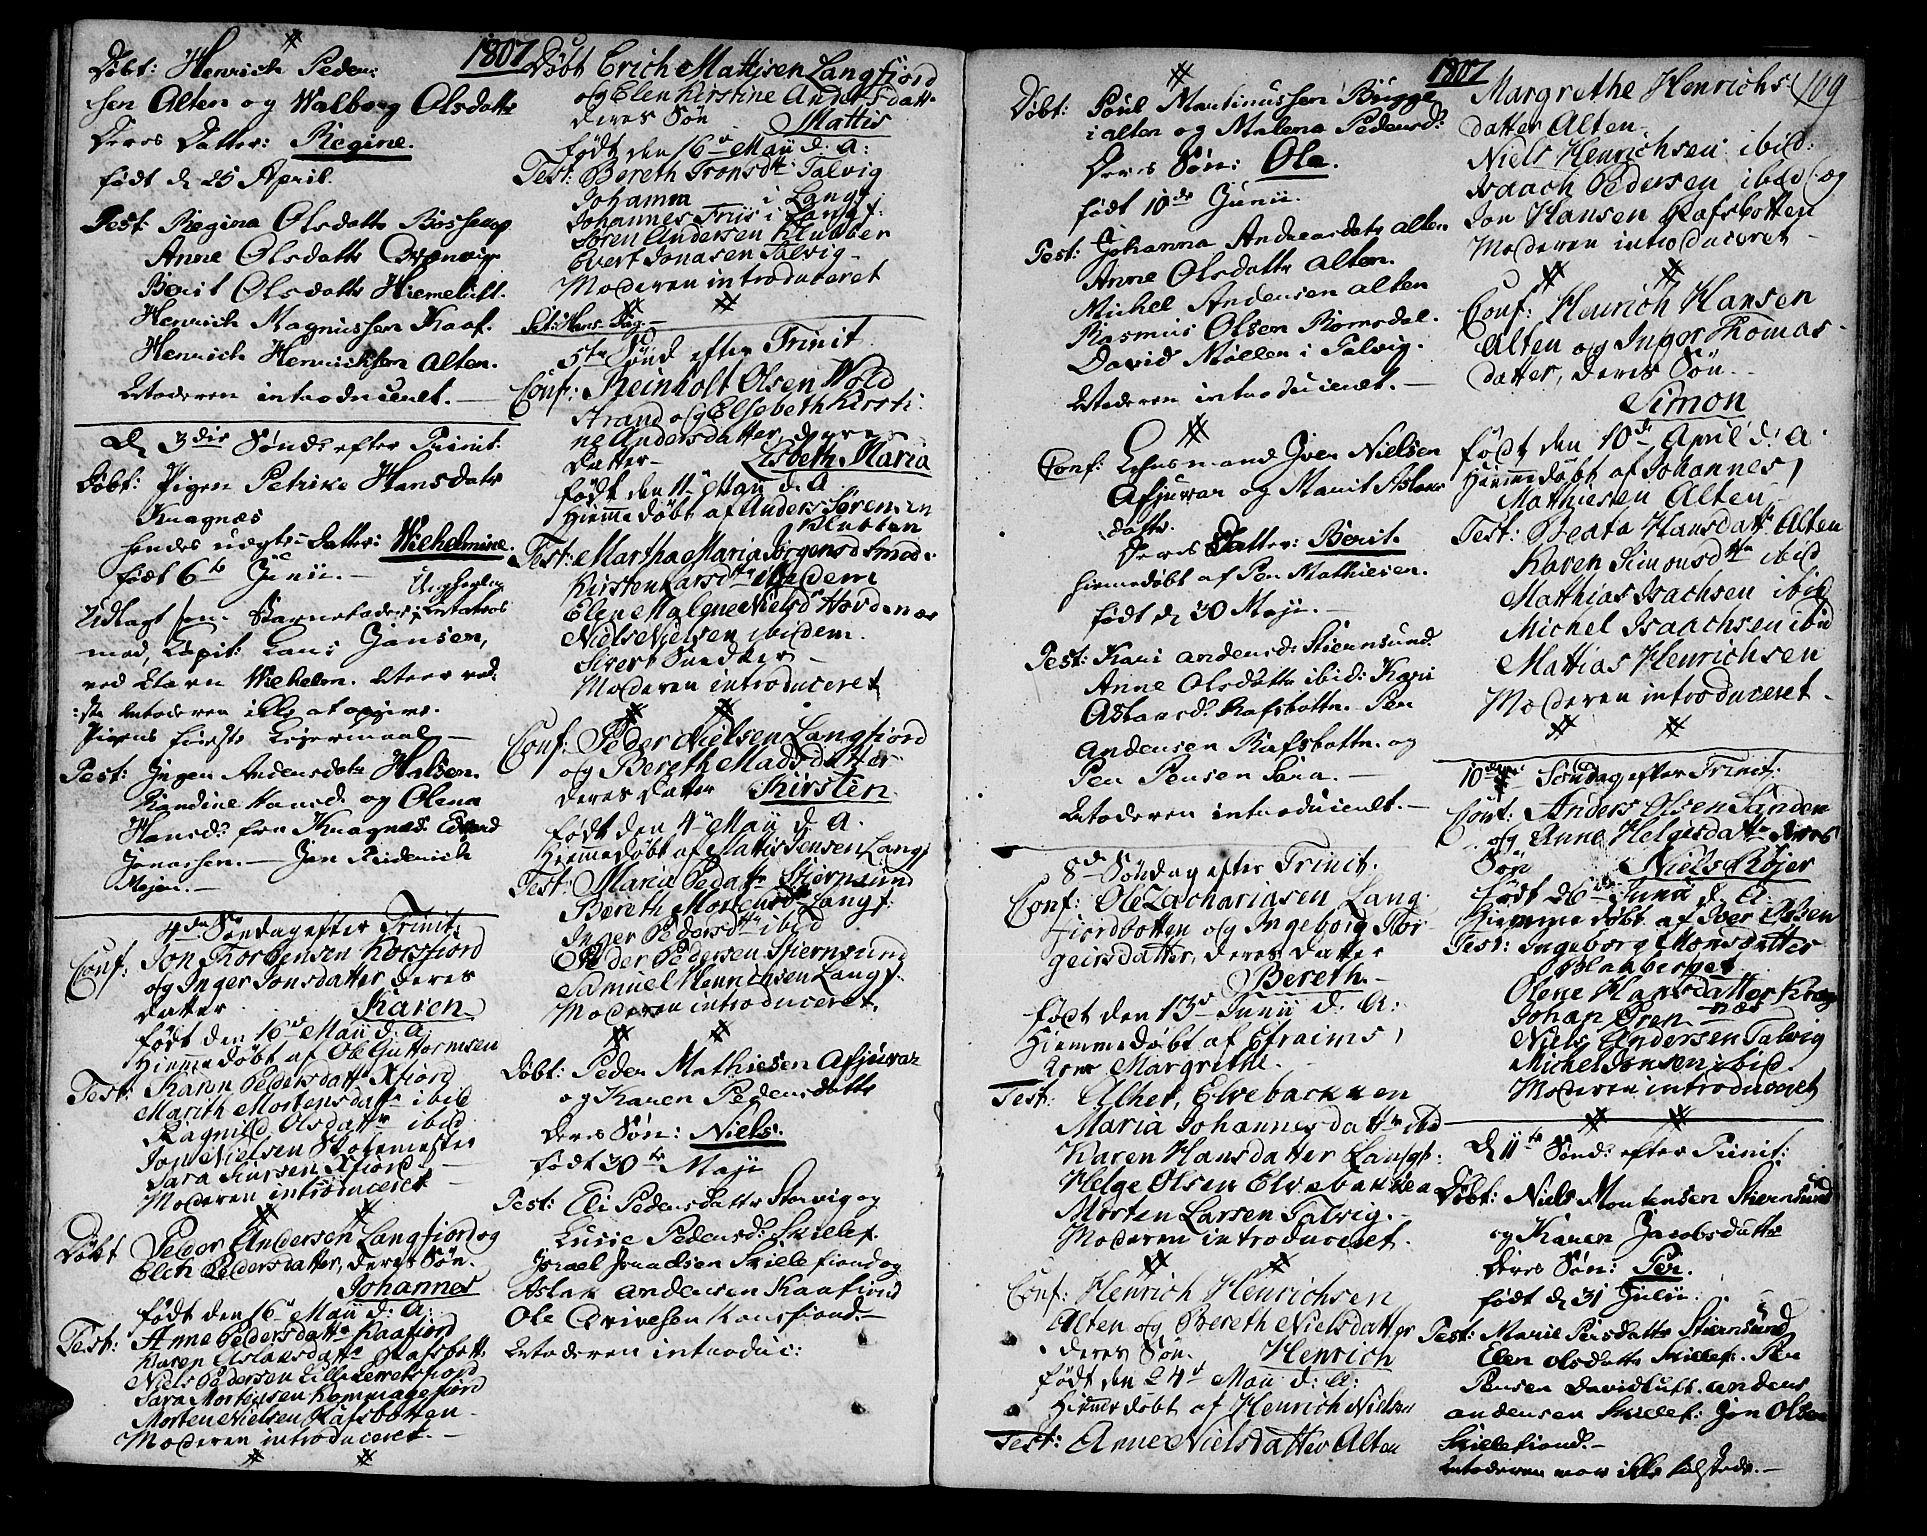 1807
Døbt: Henrich Peder
sen Alten og Walborg Olsdattr
Deres Datter: Regine.
født d 25 April.
Test: Regina Olsdattr Bossekop
Anne Olsdattr Qvænvig
Berit Olsdattr Hiemeluft.
Henrich Magnussen Kaaf.
Henrich Henrichsen Alten.
Moderen introduceret.
D 3die Sønd: efter Trinit:
Døbt: Pigen Petrike Hansdatr
Knagnæs
hendes uægte Datter: Wilhelmine.
født 6te Junii.
Udlagt som Barnefader:
Jansen,
ved Navn Wilhelm.
Moderen ikke at opgive.
Pigens første Leiermaal
Test: Inger Andersdatr Halsen.
Randine Hansd. og Olena
Hansd: fra Knagnæs. Edvard
Jonassen. Jon Friderich
Mejer.
4de Søndag efter Trinit:
Conf: Jon Torbensen Korsfjord
og Inger Jonsdatter deres
datter Karen
født den 16d Maii d. a.
Hiemmedøbt af Ole Guttormsen
Test: Karen Pedersdattr Xfiord
Marith Mortensdattr ibid
Ragnild Olsdattr ibid
Jon Nielsen Skolemester
Lara Iversen Xfiord
Moderen introduceret
Døbt Peder Andersen Langfiord og
Elen Pedersdatter, deres Søn
Johannes
født den 16d Maii d. a:
Test: Anne Pedersdattr Kaafiord
Karen Aslaksdattr Rafsbott:
Niels Pedersen Lille Lerretsfiord
Lara Mortensen Kommagefiord
Morten Nielsen Rafsbotten
Moderen introduceret.
Døbt Erich Mattisen Langfjord
og Elen Kirstine Andersdattr
deres Søn Mattis
født den 16d Maii d. a:
Test: Bereth Tronsdtr Talvig
Johanna i Langf
Johannes Friis i Langf:
Søren Andersen Klubben
Evert Jonasen Talvig
Moderen introduceret
Sct: Hans Dag.
5te Sønd efter Trinit.
Conf: Reinholt Olsen Wold
Strand og Elsebeth Kirsti
ne Andersdatter deres
datter Lisbeth Maria
født den 11 Maii d. a.
Hiemmedøbt af Anders Sørensen
Klubben
Test: Martha Maria Jørgensd
Kirsten Larsdtr ibidem
Elen Malene Nielsd Hordenæs
Niels Nielsen ibidem.
Sivert
Moderen introduceret
Conf: Peder Nielsen Langfiord
og Bereth Madsdatter
deres datter Kirsten
født den 4de Maii d. a.
Hiemmedøbt af Mattis Jensen Langf
Test: Maria Pedattr Stiernsund
Bereth Mortensdtr Langf:
Inger Pedersdtr ibid
Peder Pedersen Stiernsund
Samuel Henrichsen Langf.
Moderen introduceret.
Døbt: Peder Mathiesen Afjuvar
og Karen Pedersdattr
deres Søn: Niels.
født 30te Maji
Test: Eli Pedersdattr Storvig og
Lusie Pedersd: Skillef.
Israel Isaachsen Skillefiord og
Aslak Andersen Kaafiord
Ole Korsfiord.
Moderen introduc:
1807
109
Døbt: Poul Martinussen Bugge
i Alten og Malena Pedersd:
Deres Søn: Ole.
født 10de Junii.
Test: Johanna Andreasdatr Alten
Anne Olsdattr Alten.
Michel Andersen Alten
Rasmus Olsen Romsdal.
David Møller i Talvig.
Moderen introduceret.
Conf: Lehnsmand Iver Nielsen
Afjuvar og Marit Aslaks
datter.
Deres Datter: Berit.
hiemmedøbt af Per Mathiesen.
født d 30 Maji.
Test: Kari Andersd: Stiernsund
Anne Olsdattr ibid: Kari
Aslaasd: Rafsbottn. Per
Andersen Rafsbottn. og
Per Persen Sara.
Moderen introduceret.
8de Søndag efter Trinit.
Conf: Ole Zachariasen Lang
fiordbotten og Ingeborg Tor
geirsdatter, deres datter
Bereth.
født den 13de Junii d. a:
Hiemmedøbt af Efraims
kone Margrethe.
Test: Alhet, Elvebacken
Maria Johannesdattr ibd
Karen Hansdatter Langf:
Helge Olsen Elvebakken
Morten Larsen Talvig.
Moderen introduceret.
Conf: Henrich Henrichsen
Alten og Bereth Nielsdatter
deres Søn. Henrich
født den 24d Maii d: a:
Hiemmedøbt af Henrich Nielsen
Test: Anne Nielsdatter Alten
Margrethe Henrichs
datter Alten
Niels Henrichsen ibid:
Isaach Pedersen ibid: og
Jon Hansen Rafsbotten
Moderen introduceret
Conf: Henrich Hansen
Alten og Inger Thomas
datter, deres Søn
Simon
født den 10de April d: a.
Hiemmedøbt af Johannes
Mathiesen Alten
Test: Beata Hansdattr Alten
Karen Simonsdtr ibid
Matthias Isachsen ibid
Michel Isaachsen ibid
Mattias Henrichsen
Moderen introduceret
10de Søndag efter Trinit:
Conf: Anders Olsen Sanden
og Anne Helgesdattr deres
Søn Niels Røjer
født 26de Junii d. a.
Hiemmedøbt af Iver Olsen
Test: Ingeborg Monsdatter
Blaaberget
Olene Hansdatter Krag
næs
Johan Øren
Niels Andersen Talvig
Michel Jonsen ibid.
Moderen introduceret
D 11te Sønd: efter Trinit:
Døbt: Niels Mortensen Stiernsund
og Karen Jacobsdattr
deres Søn: Per.
født d 31 Julii
Test: Marie Persdattr Stiernsund
Elen Olsdattr Skillef. Per
Persen Davidluft. Anders
Andersen Skillef: Jon Olsen
Skillefiord.
Moderen var ikke tilstede.